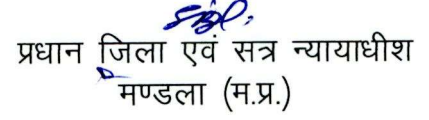 प्रधान जिला एवं सत्र न्यायाधीश
मण्डला (म.प्र.)